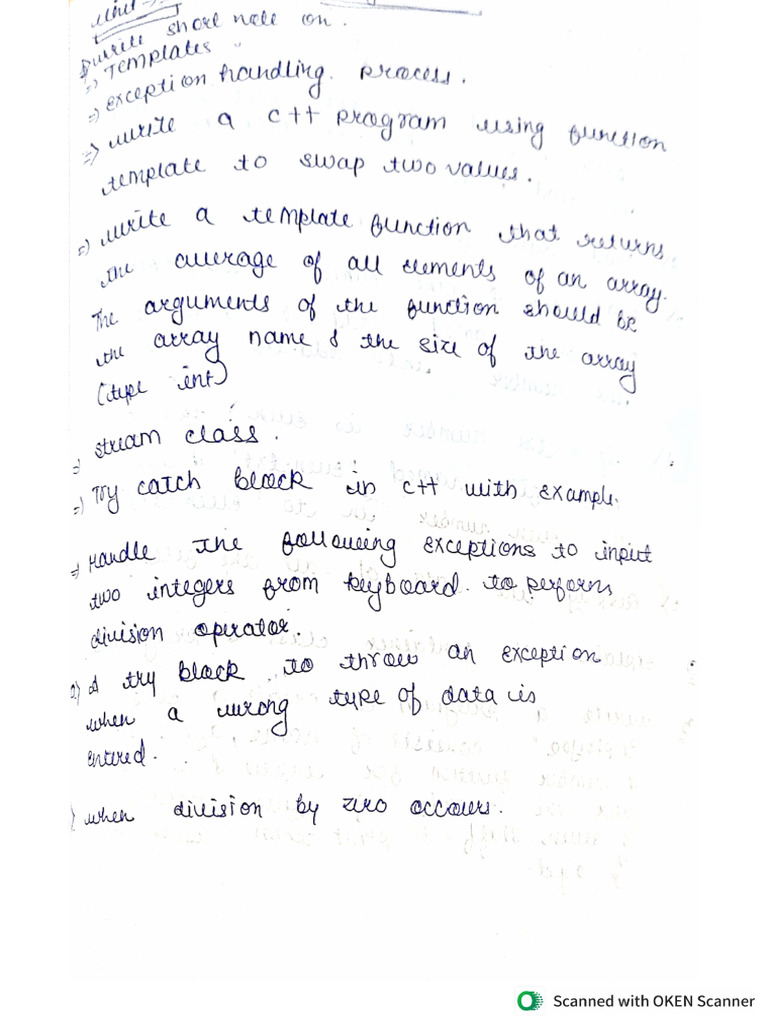 Unit
write short note on.
=> Templates
=> exception handling process.
=> write a c++ program using function
template to swap two values.
=> write a template function that returns
the average of all elements of an array.
The arguments of the function should be
the array name & the size of the array
(type int)
=> stream class.
=> Try catch block in c++ with example.
=> Handle the following exceptions to input
two integers from keyboard. to perform
division operator.
a) A try block to throw an exception
when a wrong type of data is
entered.
) when division by zero occours.
Scanned with OKEN Scanner